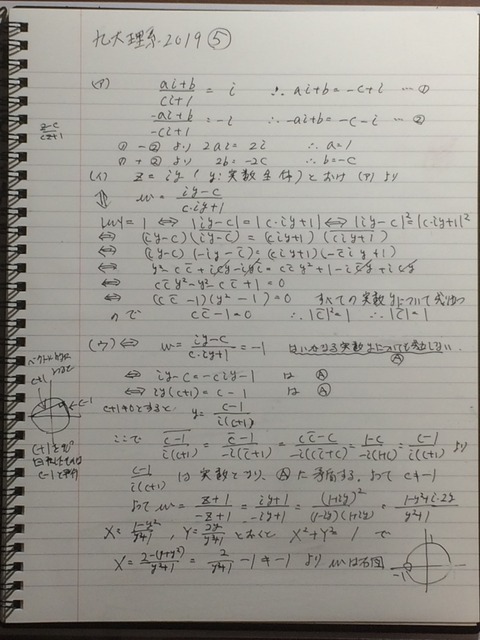 九大理系 2019 ⑤
(ア) (ai+b)/(ci+1) = i ∴ ai+b = -c+i … ①
(-ai+b)/(-ci+1) = -i ∴ -ai+b = -c-i … ②
① - ② より 2ai = 2i ∴ a=1
① + ② より 2b = -2c ∴ b=-c
(z-c)/(cz+1)
(イ) z = iy (y: 実数全体) とおけ (ア) より
⇕ w = (iy-c)/(c・iy+1)
|w|=1 ⇔ |iy-c| = |c・iy+1| ⇔ |iy-c|² = |c・iy+1|²
⇔ (iy-c)(\overline{iy-c}) = (ciy+1)(\overline{ciy+1})
⇔ (iy-c)(-iy-c̄) = (ciy+1)(-c̄iy+1)
⇔ y²-cc̄+icy-iyc̄ = cc̄y²+1-ic̄y+icy
⇔ cc̄y²-y²-cc̄+1=0
⇔ (cc̄-1)(y²-1)=0 すべての実数yについて成り立つ
ので cc̄-1=0 ∴ |c|²=1 ∴ |c|=1
(ウ) ⇔ w = (iy-c)/(c・iy+1) = -1 はいかなる実数yについても成立しない Ⓐ
⇔ iy-c = -ciy-1 は Ⓐ
⇔ iy(c+1) = c-1 は Ⓐ
c+1≠0とすると y = (c-1)/(i(c+1))
ここで \overline{(c-1)/(i(c+1))} = (c̄-1)/(-i(c̄+1)) = (cc̄-c)/(-i(cc̄+c)) = (1-c)/(-i(1+c)) = (c-1)/(i(c+1)) より
(c-1)/(i(c+1)) は実数となり、Ⓐに矛盾する。よって c=-1
よって w = (z+1)/(-z+1) = (iy+1)/(-iy+1) = (1+iy)²/((1-iy)(1+iy)) = (1-y²+i・2y)/(y²+1)
X = (1-y²)/(y²+1), Y = 2y/(y²+1) とおくと X²+Y²=1 で
X = (2-(1+y²))/(y²+1) = 2/(y²+1) -1 ≠ -1 より wは右図
-1
ベクトル
c+1
c-1
c+1を90°